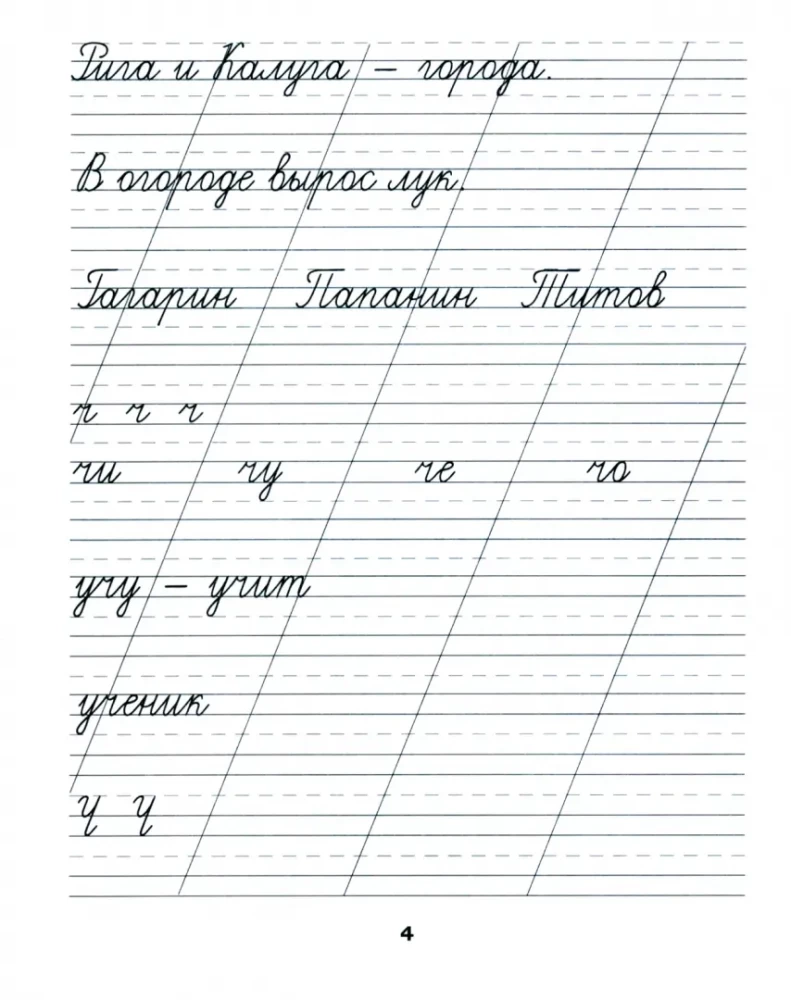 Рига и Калуга – города.
В огороде вырос лук.
Гагарин Папанин Титов
ч ч ч
чи чу че чо
учу – учит
ученик
Ч Ч
4